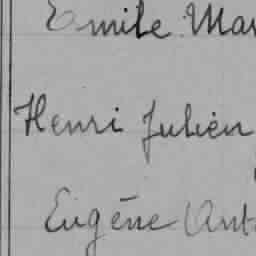 Emile Mar
Henri Julien
Eugène (Ant